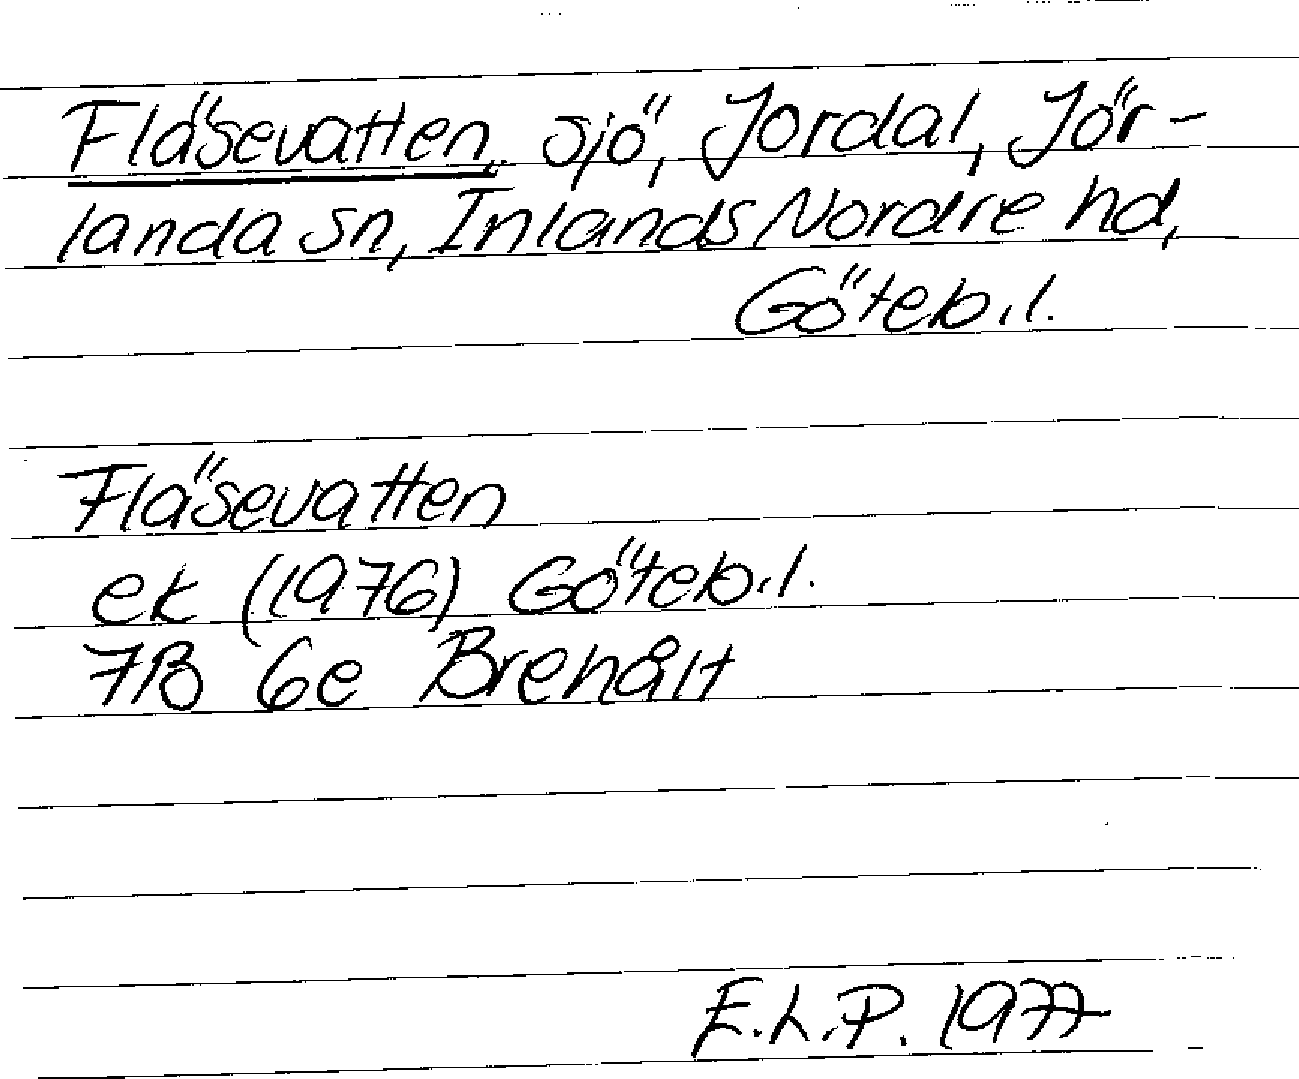 Fläsevatten, sjö, Jordal, Jör-
landa sn, Inlands Nordre hd,
Göteb.l.
Fläsevatten
ek (1976) Göteb.l.
7B 6e Brehålt
E.L.P. 1977